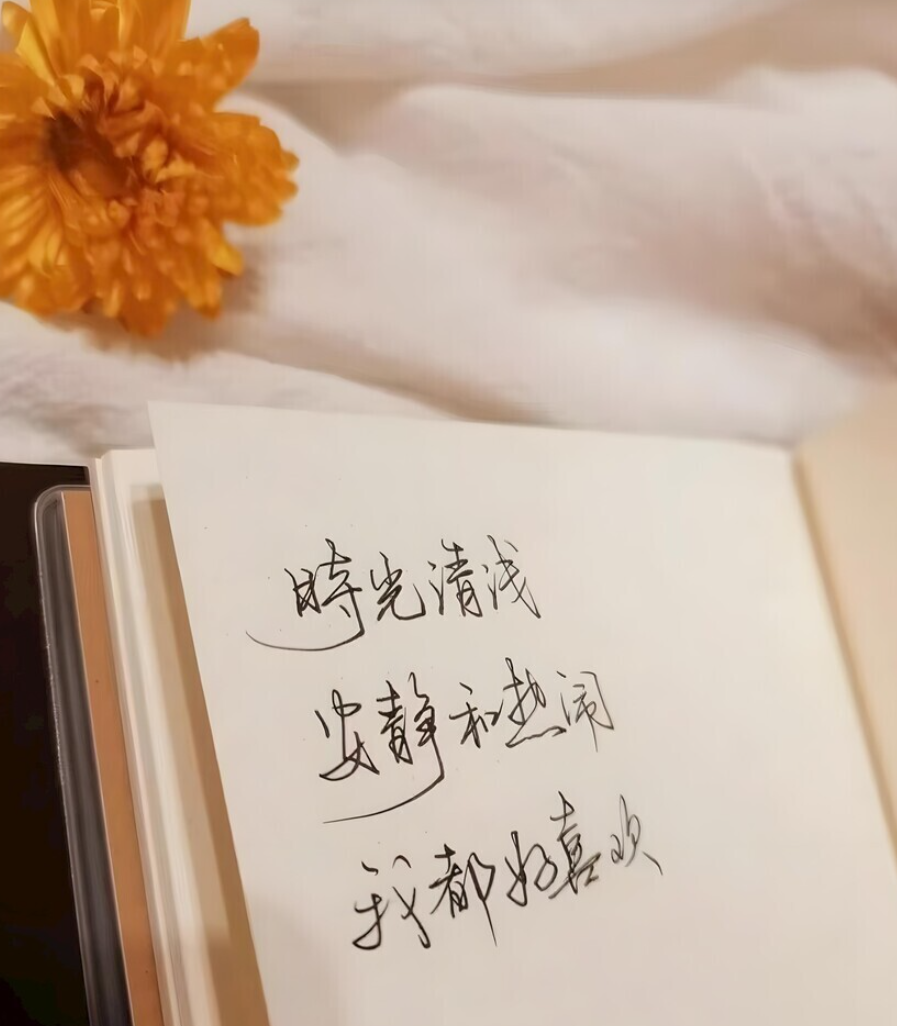 時光清浅
安静和热闹
我都好喜欢